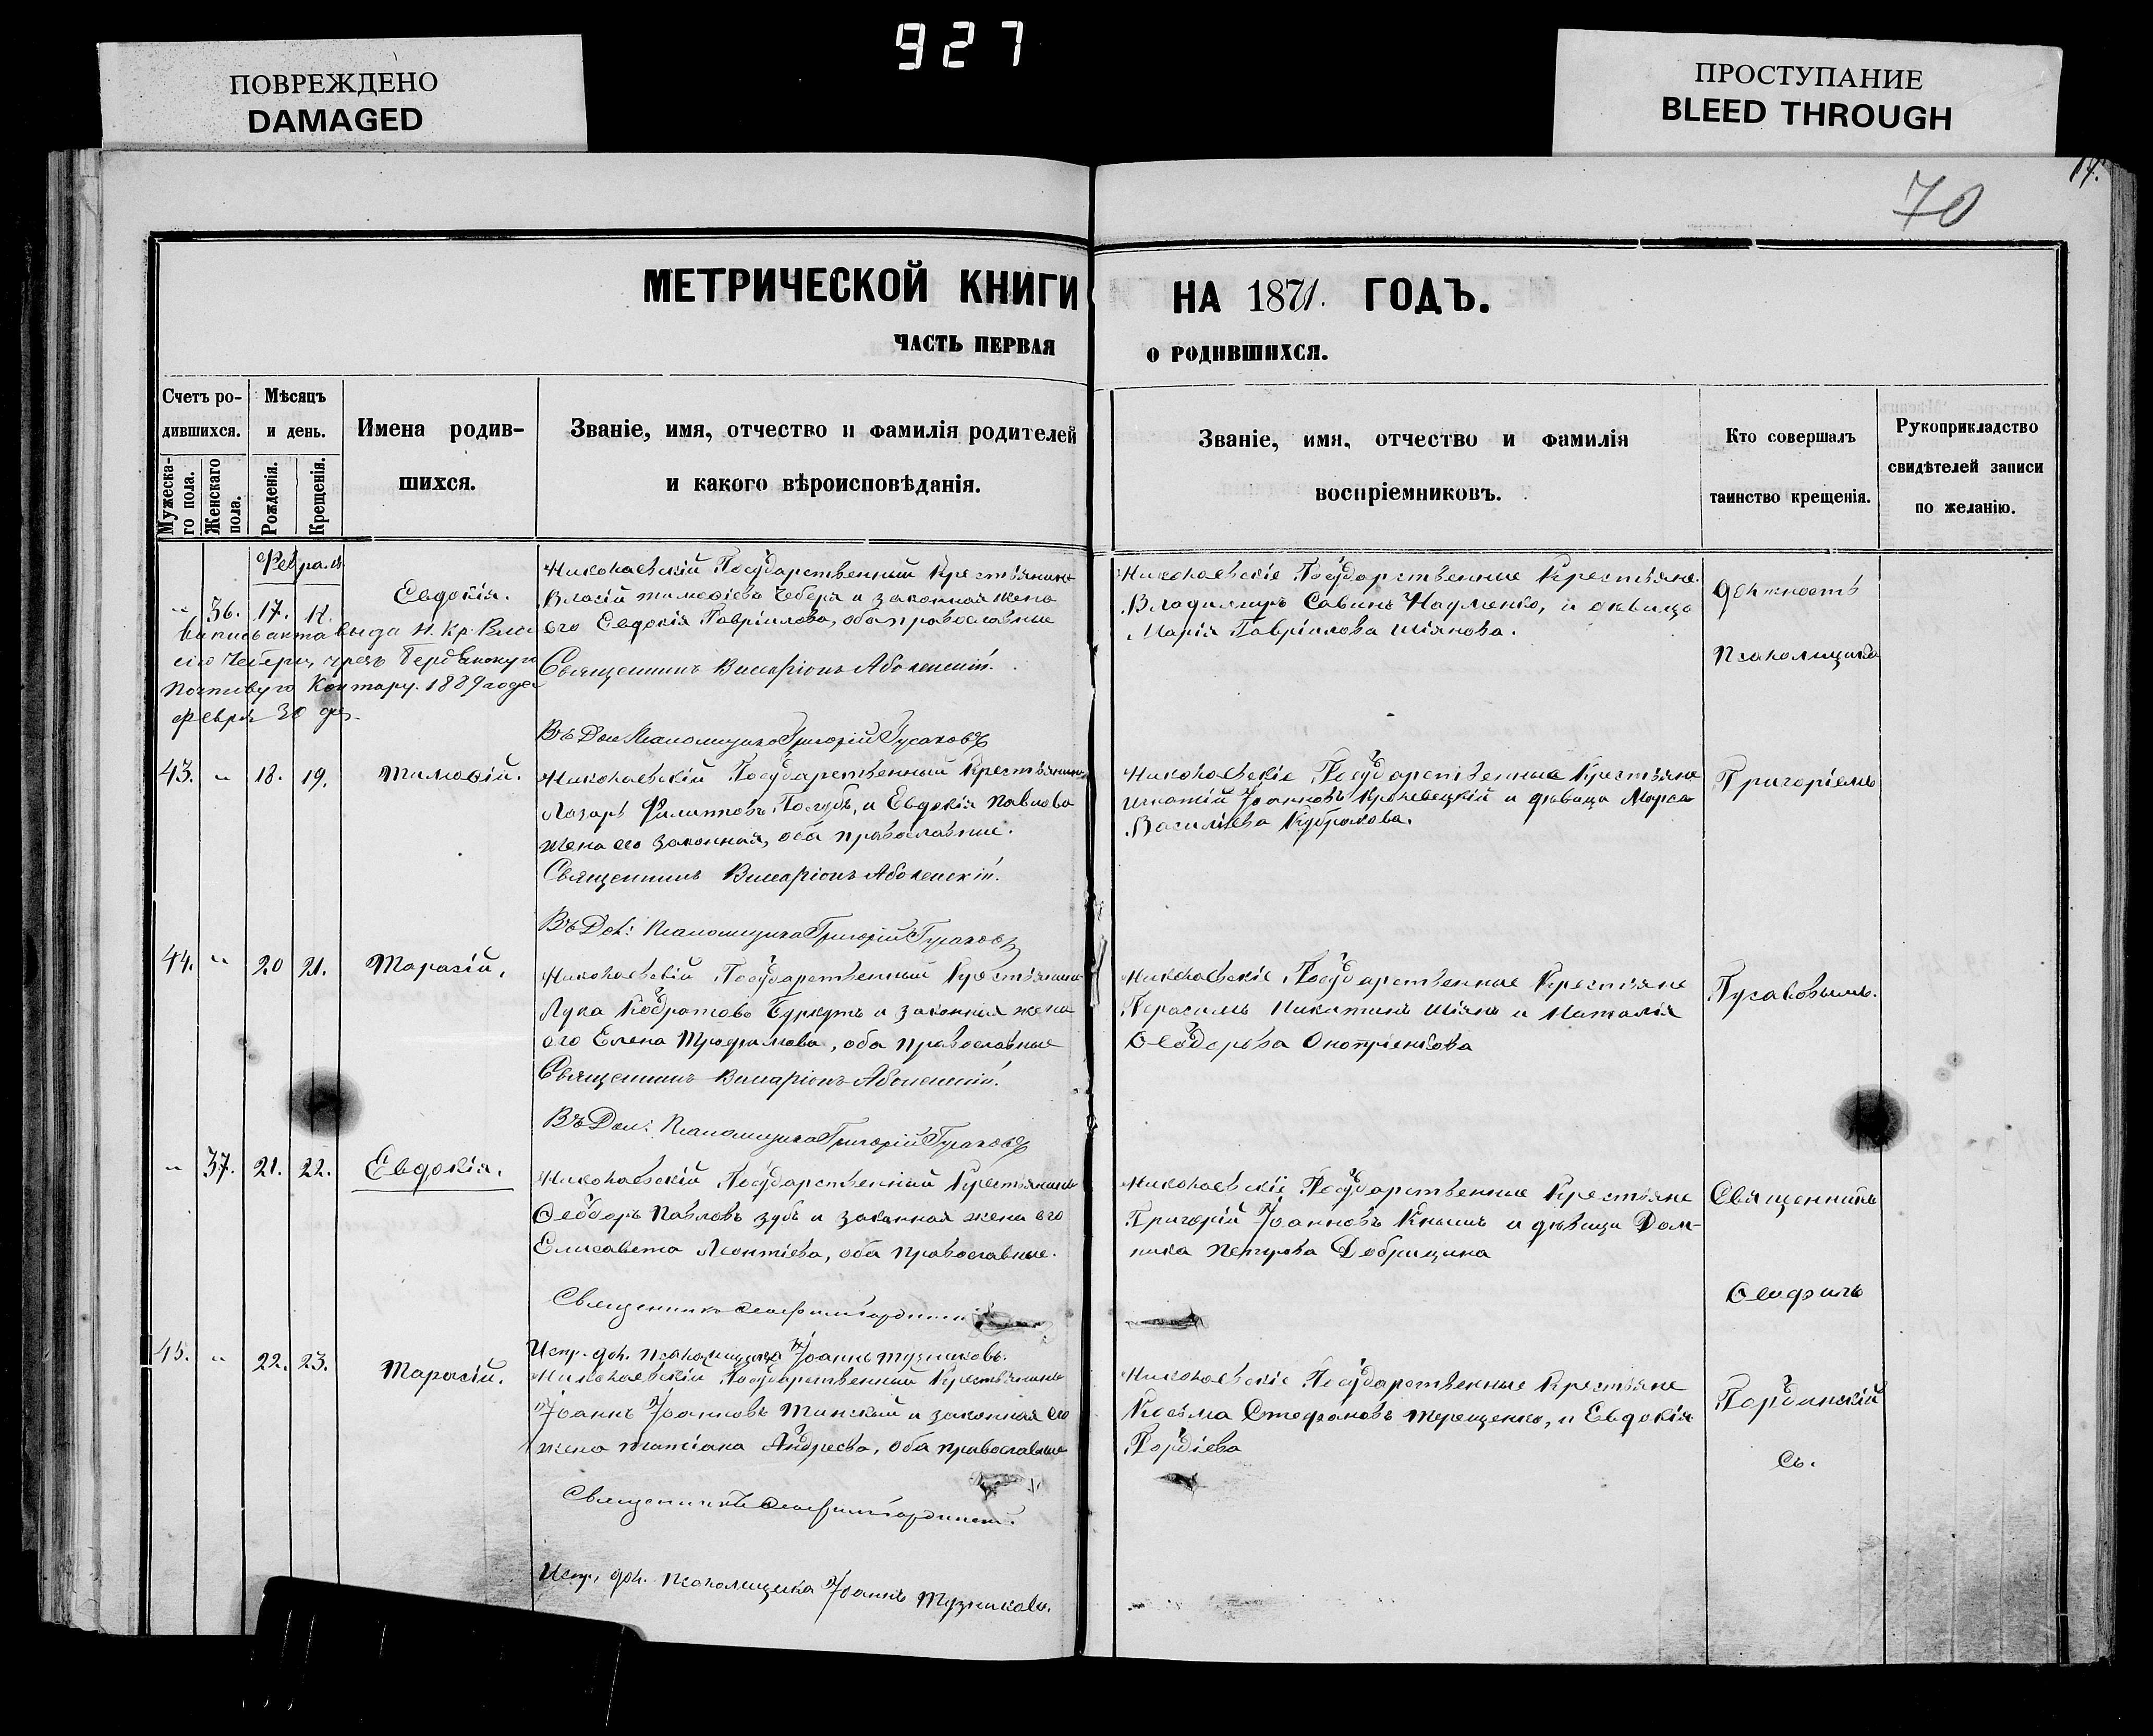 927
ПОВРЕЖДЕНО
DAMAGED
ПРОСТУПАНИЕ
BLEED THROUGH
70
МЕТРИЧЕСКОЙ КНИГИ НА 1871. ГОДЪ.
ЧАСТЬ ПЕРВАЯ О РОДИВШИХСЯ.
Счетъ ро-
дившихся.
Мужеска-
го пола.
Женскаго
пола.
Мѣсяцъ
и день.
Рожденія.
Крещенія.
Имена родив-
шихся.
Званіе, имя, отчество и фамилія родителей
и какого вѣроисповѣданія.
Званіе, имя, отчество и фамилія
воспріемниковъ.
Кто совершалъ
таинство крещенія.
Рукоприкладство
свидѣтелей записи
по желанію.
Февраля
" 36. 17.
Евдокія.
Николаевскій Государственный Крестьянинъ
Власій Тимоѳіевъ Чеберя и законная жена
его Евдокія Гавріилова, оба православные
Священникъ Виссаріонъ Аболенскій.
Въ Дол Псаломщика Григорій Гусаковъ
Николаевскіе Государственные Крестьяне
Владимиръ Савинъ Науменко, и дѣвица
Марія Гавріилова Шіянова.
Должность
Псаломщика
1889 года
43. " 18. 19.
Тимоѳій.
Николаевскій Государственный Крестьянинъ
Лазарь Филиповъ Голубъ, и Евдокія Павлова
жена его законная, оба православные.
Священникъ Виссаріонъ Аболенскій.
Въ Дол: Псаломщика Григорій Гусаковъ
Николаевскіе Государственные Крестьяне
Игнатій Іоанновъ Кролевецкій и дѣвица Марѳа
Василіева
Григоріемъ
44. " 20 21.
Тарасій.
Николаевскій Государственный Крестьянинъ
Лука Кодратовъ Буркутъ и законная жена
его Елена Трофимова, оба православные
Священникъ Виссаріонъ Аболенскій.
Въ Дол: Псаломщика Григорій Гусаковъ
Николаевскіе Государственные Крестьяне
Герасимъ Никитинъ Шіянъ и Наталія
Ѳеодорова Онопріенкова
Гусаковымъ.
" 37. 21. 22.
Евдокія.
Николаевскій Государственный Крестьянинъ
Ѳеодоръ Павловъ Зубъ и законная жена его
Елисавета Леонтіева, оба православные.
Священникъ
Исп. дол. псаломщика Іоаннъ Тузниковъ.
Николаевскіе Государственные Крестьяне
Григорій Іоанновъ Кнышъ и дѣвица Дом-
ника Петрова Добрицина
Священникъ
45. " 22. 23.
Тарасій.
Николаевскій Государственный Крестьянинъ
Іоаннъ Іоанновъ Тинскій и законная его
жена Татіана Андреева, оба православные
Священникъ
Исп. дол. псаломщика Іоаннъ Тузниковъ.
Николаевскіе Государственные Крестьяне
Косьма Стефановъ Терещенко, и Евдокія
Гордіева
Гординскій
съ.